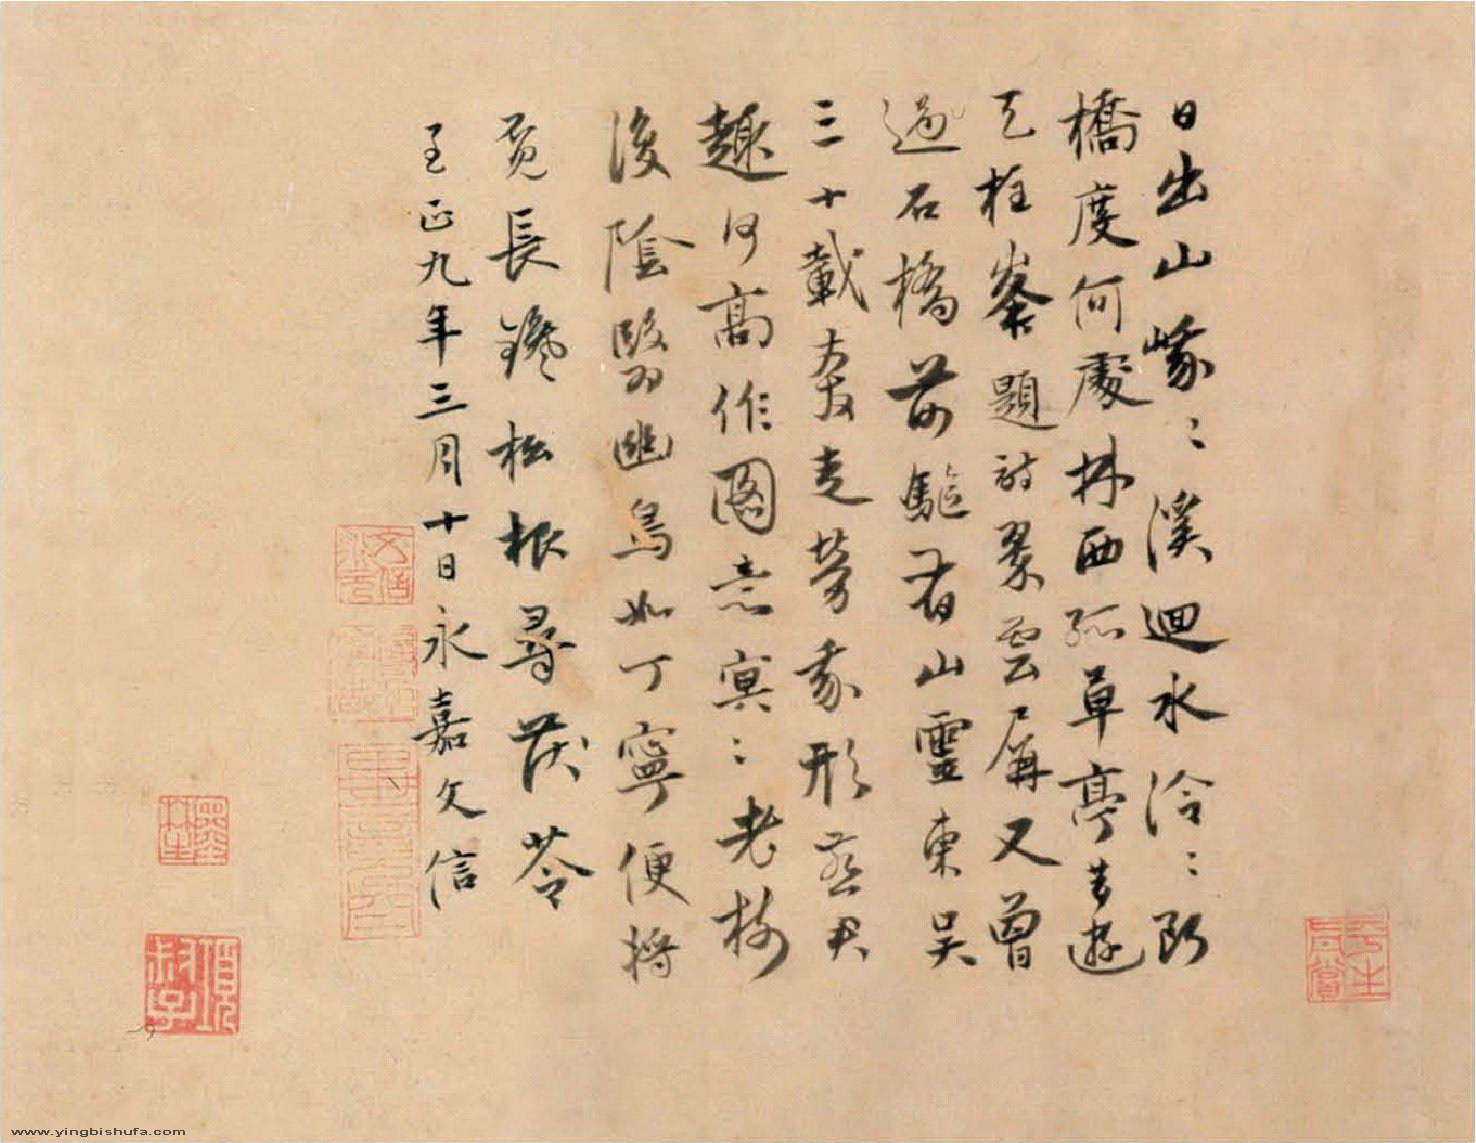 日出山峩〻溪迴水泠〻斷
橋度何處林西孤草亭昔遊
天柱峯題詩翠雲屏又曾
過石橋前驅有山靈東吳
三十載奔走勞我形燕
趣何高作圖意冥〻老樹
陰翳幽鳥如丁寧便將
長鑱松根尋茯苓
至正九年三月十日永嘉文信
項叔子
www.yingbishufa.com